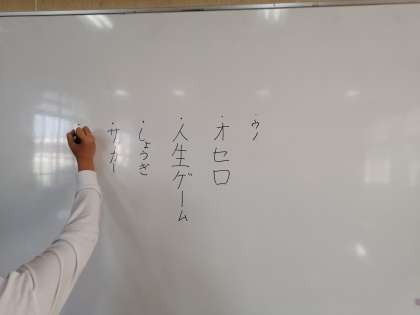 ・ウノ
・オセロ
・人生ゲーム
・しょうぎ
・サッカー
・